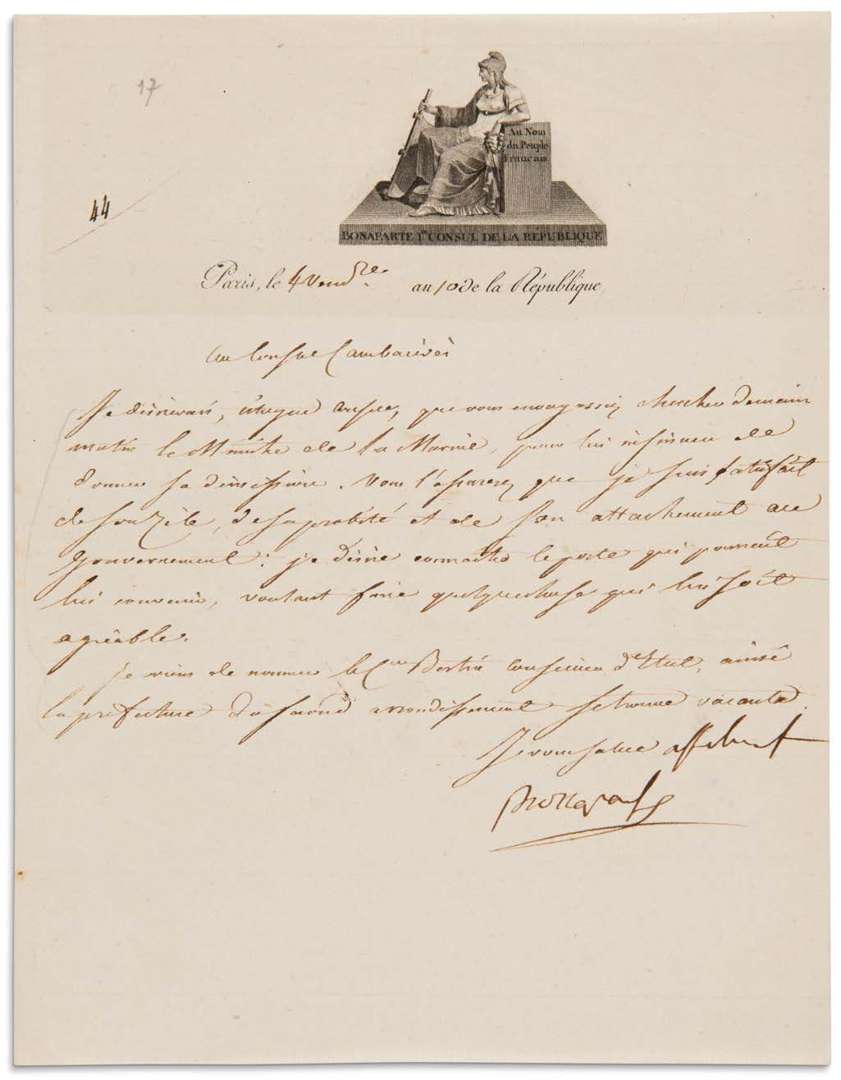 17
44
Au Nom
du Peuple
Français
BONAPARTE 1er CONSUL DE LA REPUBLIQUE
Paris, le 4 Vendre au 10 de la République
Au Consul Cambacérès
Je désirerais, Consul, que vous envoyassiez chercher demain
matin le Ministre de la Marine, pour lui insinuer de
donner sa démission. Vous l'assurerez que je suis satisfait
de son Zèle, de sa probité et de son attachement au
gouvernement : je désire connaître le poste qui pourrait
lui convenir, voulant faire quelque chose qui lui soit
agréable.
Je viens de nommer le Cen conseiller d'Etat, ainsi
la préfecture arrondissement se trouve vacante.
Je vous salue affect
Bonaparte